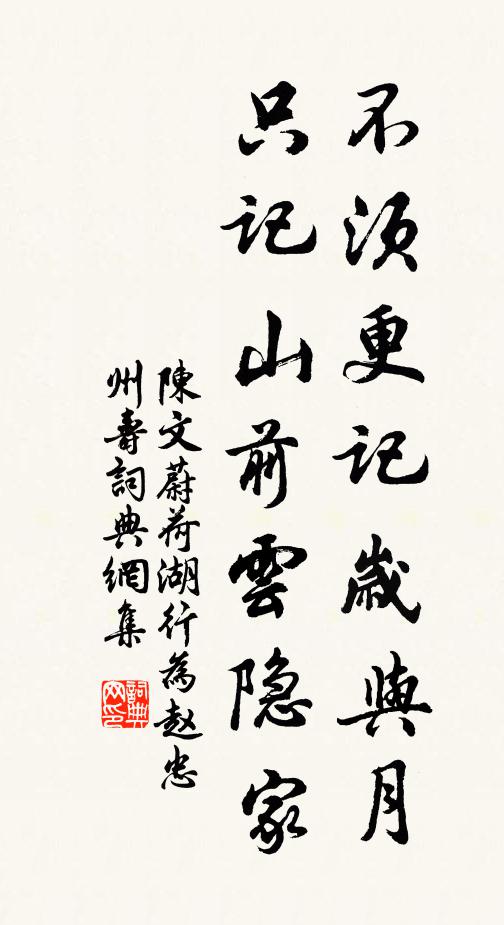 不須更記歲與月
只記山前雲隐家
陳文蔚荷湖行為赵忠
州壽詞典網集
詞典网印